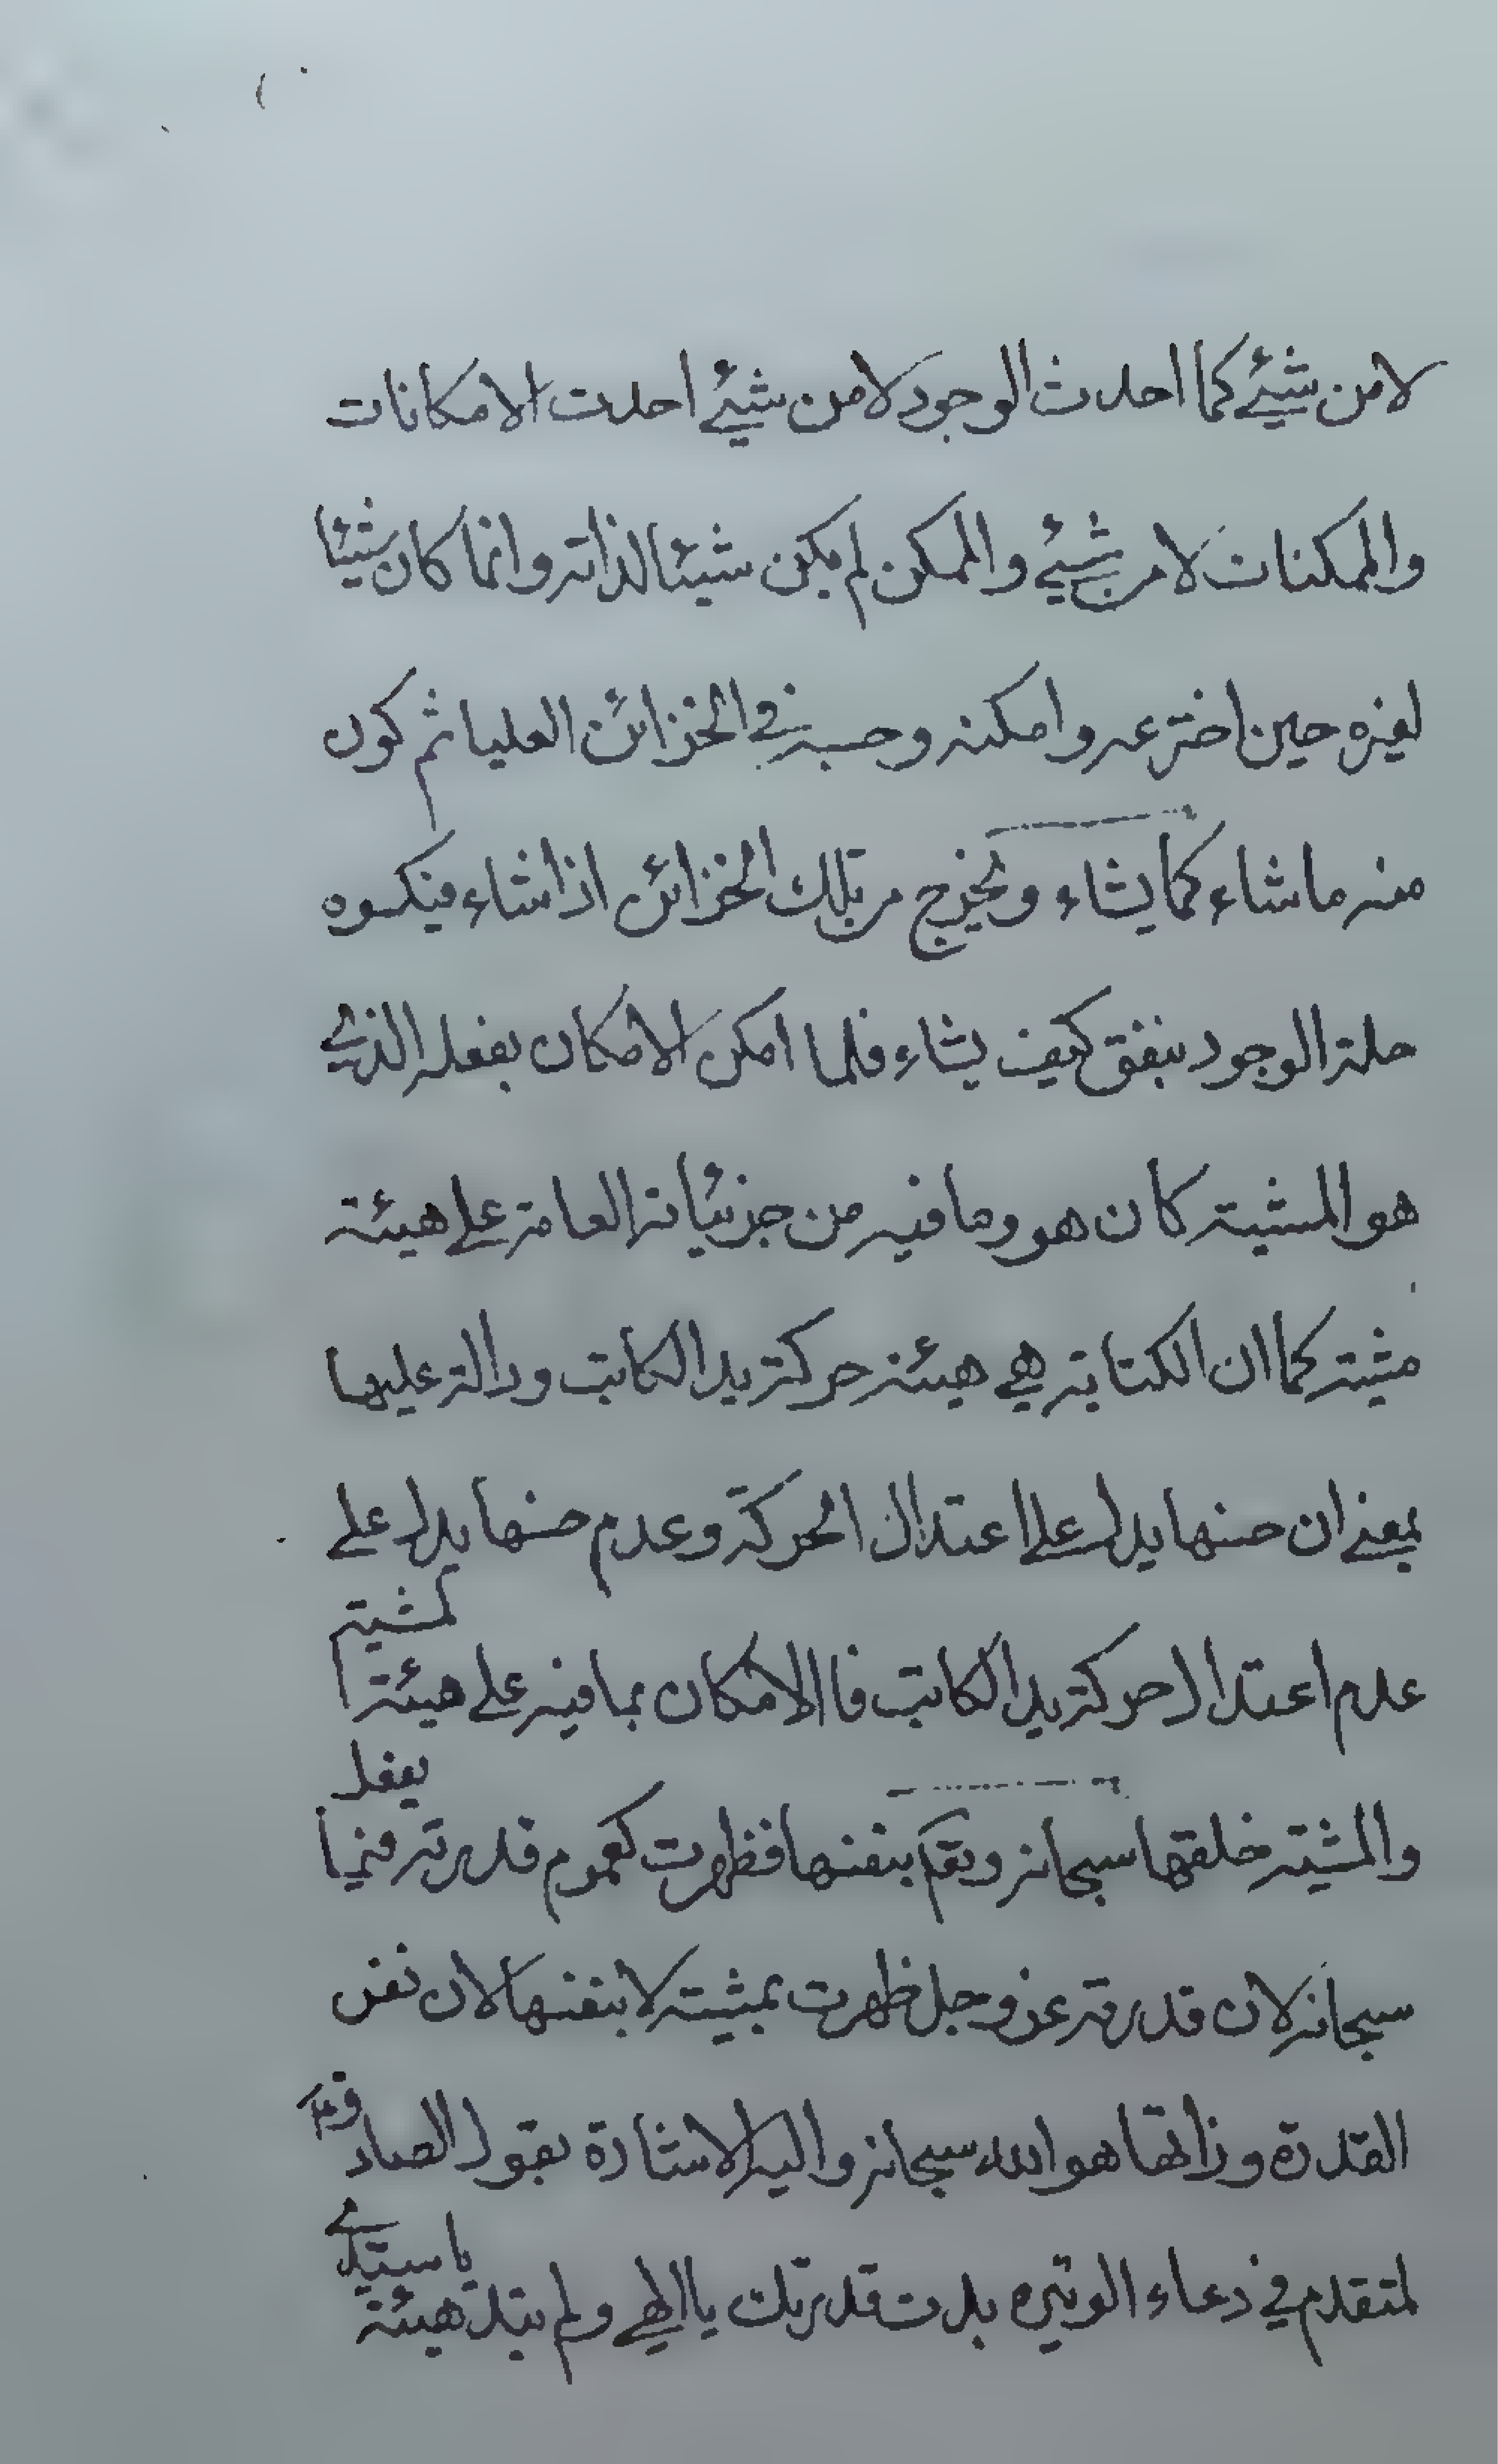 لا من شيئ كما احدث الوجود لا من شيئ احدث الامكانات
والممكنات لا من شيئ والممكن لم يكن شيئا لذاته وانما كان شيئا
لغيره حين اخترعه وامكنه وحبسه في الخزائن العليا ثم كون
منه ما شاء كما يشاء ويخرج من تلك الخزائن اذا شاء فيكسوه
حلة الوجود ينفق كيف يشاء فلما امكن الامكان بفعله الذي
هو المشية كان هو وما فيه من جزئياته العامة على هيئة
مشيته كما ان الكتابة هي هيئة حركة يد الكاتب ودالة عليها
بمعنى ان حسنها يدل على اعتدال الحركة وعدم حسنها يدل على
عدم اعتدال حركة يد الكاتب فا الامكان بما فيه على هيئة المشية
والمشية خلقها سبحانه وتعم بنفسها فظهرت كعموم قدرته فيما يفعل
سبحانه لان قدرته عز وجل ظهرت بمشيته لا بنفسها لان نفس
القدرة وذاتها هو الله سبحانه واليه الاشارة بقول الصادق ع
لمتقدم في دعاء الوتيره بدت قدرتك يا الهي ولم تبد هيئة يا سيدي